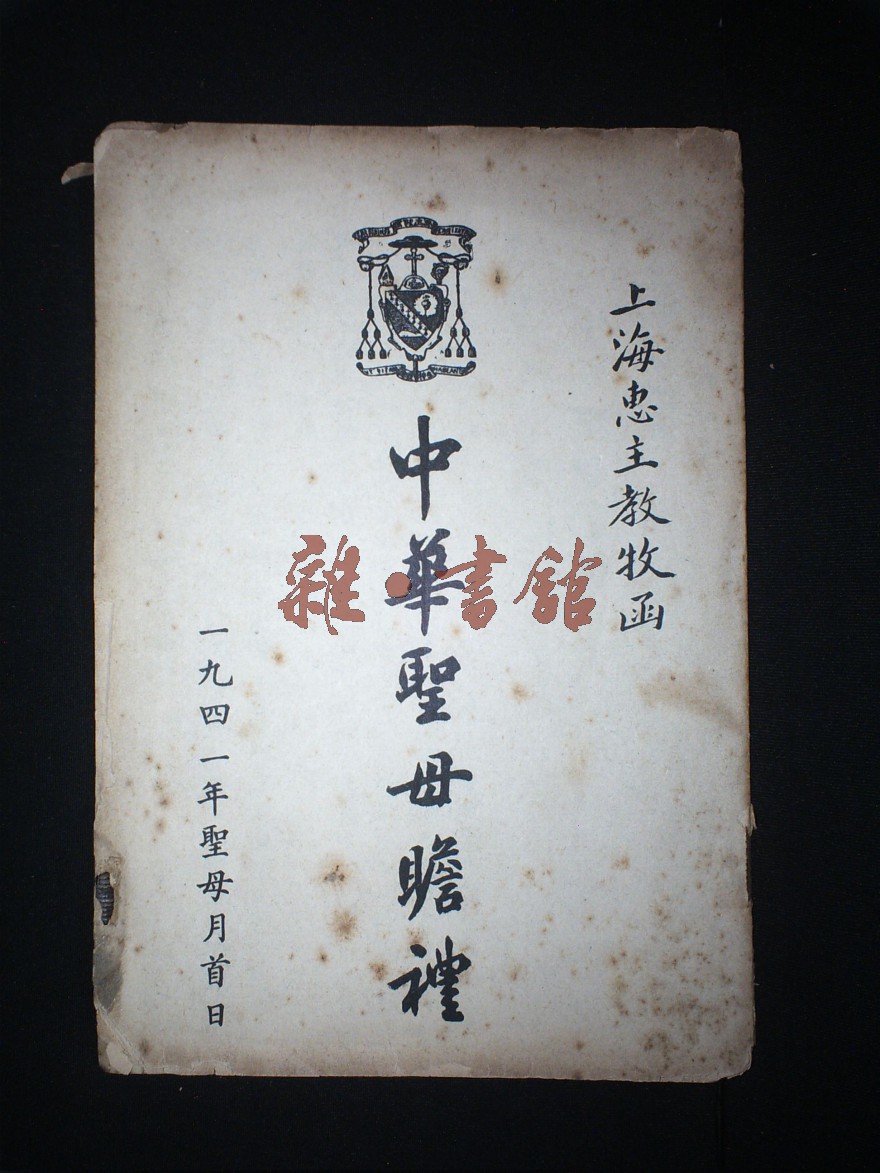 上海惠主教牧函
中華聖母瞻禮
一九四一年聖母月首日
雜·書館